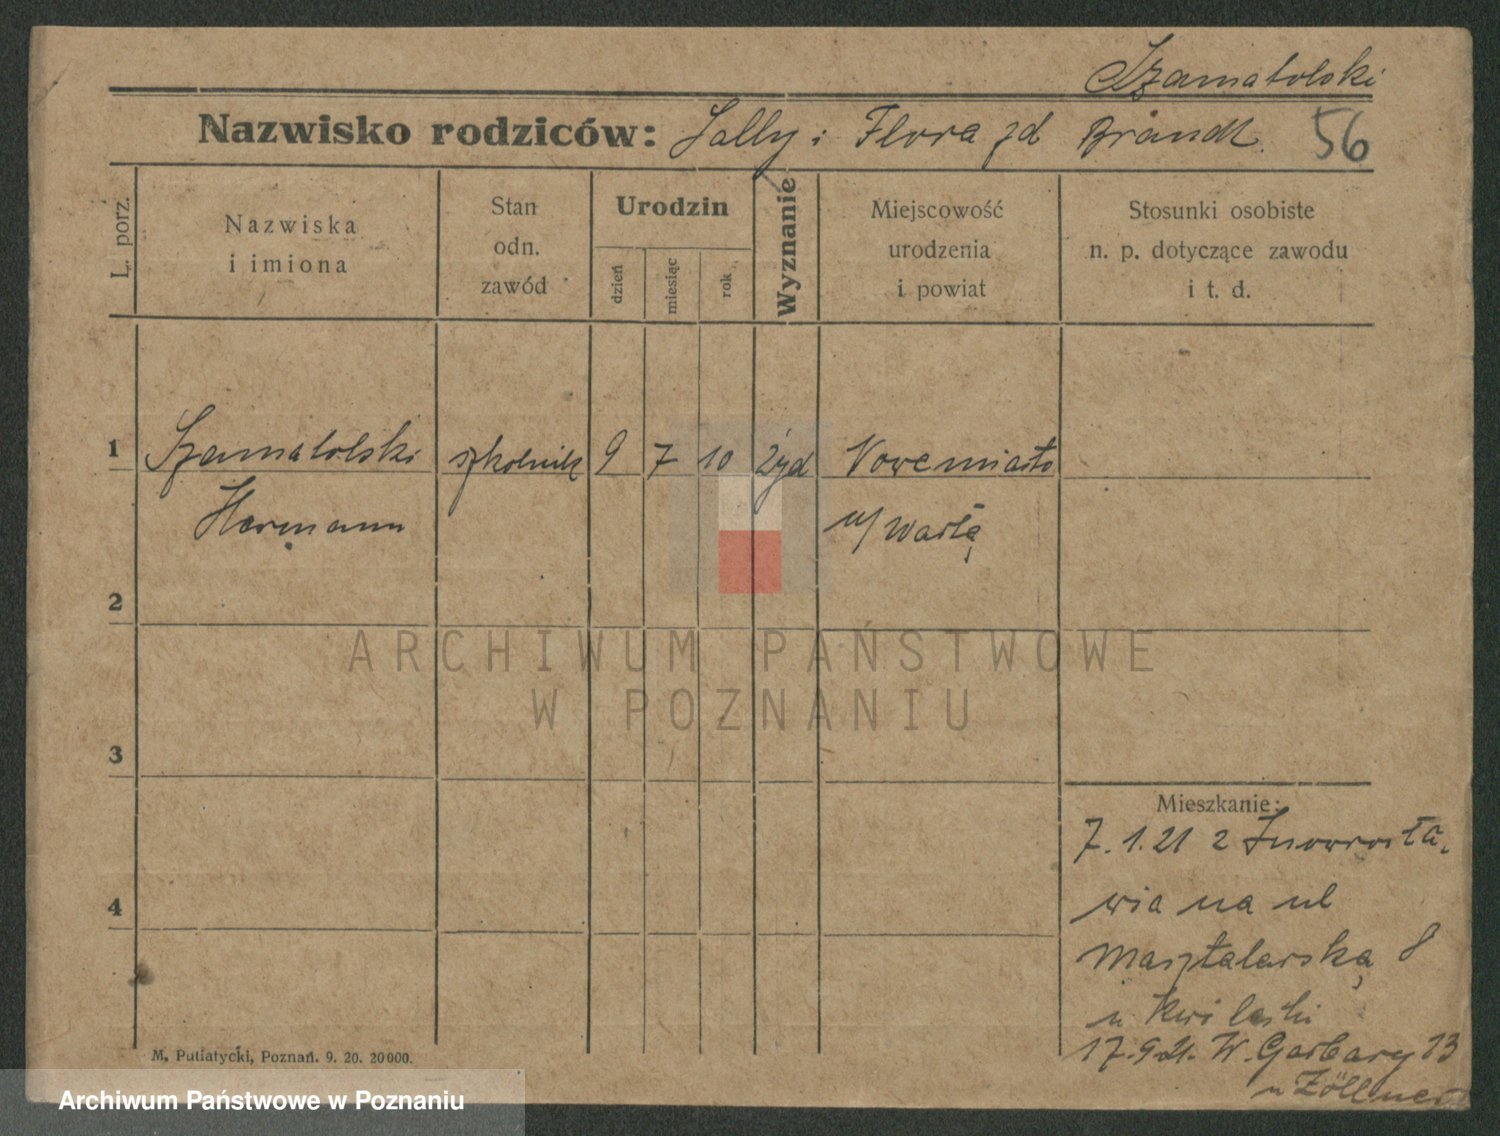 Szamatolski
Nazwisko rodziców: Sally i Flora zd Brandt. 56
L. porz.
Nazwiska
i imiona
Stan
odn.
zawód
Urodzin
dzień
miesiąc
rok
Wyznanie
Miejscowość
urodzenia
i powiat
Stosunki osobiste
n. p. dotyczące zawodu
i t. d.
1 Szamatolski szkolnik 9 7 10 żyd Nowemiasto
Hermann n/Wartą
2
ARCHIWUM PAŃSTWOWE
W POZNANIU
3
Mieszkanie:
7.1.21 z Inowrocła.
4
wia na ul
Masztalarską 8
u Kwilecki
17.9.21. W. Garbary 13
u Zöllner
M. Putiatycki, Poznań. 9. 20. 20000.
Archiwum Państwowe w Poznaniu